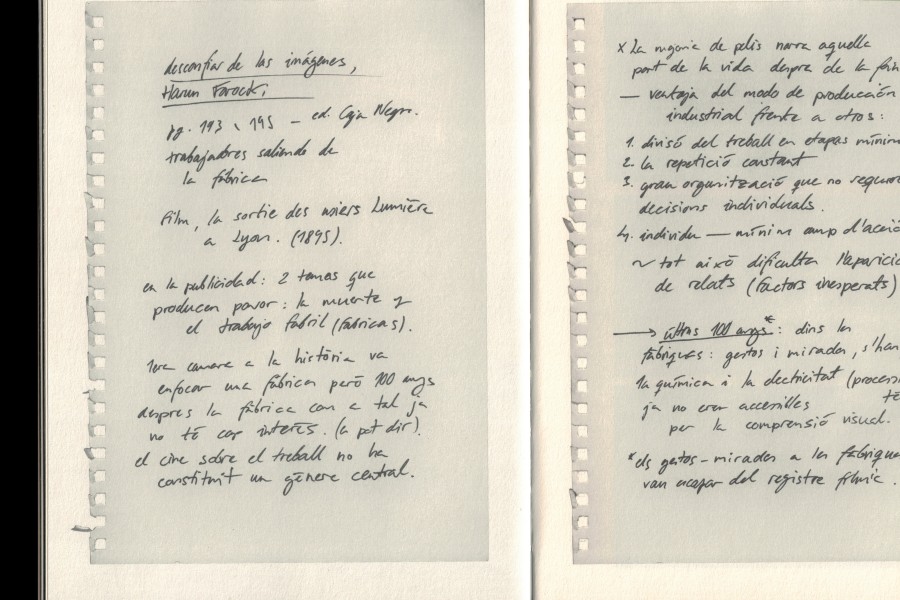 desconfiar de las imágenes,
Harun Farocki
pg. 193 195 – ed. Caja Negra.
trabajadores saliendo de
la fábrica
Film, la sortie des usiers Lumière
a Lyon. (1895).
en la publicidad: 2 temas que
producen pavor: la muerte y
el trabajo fabril (fábricas).
1era camera a la història va
enfocar una fàbrica però 100 anys
despres la fàbrica com a tal ja
no té cap interès. (a pot dir).
el cine sobre el treball no ha
constituït un gènere central.
x La mayoria de pelis narra aquella
part de la vida despres de la
— ventaja del modo de producción
industrial frente a otros:
1. divisó del treball en etapas
2. la repetició constant
3. gran organització que no
decisions individuals.
4. individu — mínim amp d'acció
~ tot això dificulta l'aparició
de relats (factors inesperats)
→ últims 100 anys*: dins la
fàbriques: gestos i mirades, s'han
la química i la electricitat
ja no eren accesibles
per la comprensió visual.
*els gestos – mirades a la
van escapar del registre fílmic.